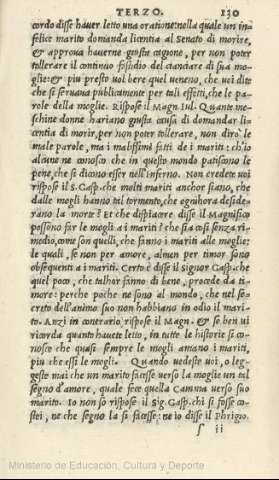 TERZO. 130
cordo disse hauer letto una oratione: nella quale un in
felice marito domanda licentia al Senato di morire,
& approua hauerne giusta cagione, per non poter
tollerare il continuo fastidio del cianciare di sua mo
glie: & piu presto uol bere quel ueneno, che uoi dite
che si seruaua publicamente per tali effetti, che le pa
role della moglie. Rispose il Magn. Iul. Quante me
schine donne hariano giusta causa di domandar li
centia di morir, per non poter tollerare, non dirò le
male parole, ma i malissimi fatti de i mariti: ch'io
alcune ne conosco che in questo mondo patiscono le
pene, che si dicono esser nell'inferno. Non credete uoi
rispose il S. Gasp. che molti mariti anchor siano, che
dalle mogli hanno tal tormento, che ognihora deside
rano la morte? Et che dispiacere disse il Magnifico
possono far le mogli a i mariti? che sia così senza ri
medio, come son quelli, che fanno i mariti alle moglie;
le quali, se non per amore, almen per timor sono
obsequenti a i mariti. Certo è disse il Signor Gasp. che
quel poco, che talhor fanno di bene, procede da ti
more: perche poche ne sono al mondo, che nel se
creto dell'animo suo non habbiano in odio il mari-
to. Anzi in contrario, rispose il Magn. & se ben ui
ricorda quanto hauete letto, in tutte le historie si co
nosce che quasi sempre le mogli amano i mariti,
piu ch'essi le mogli. Quando uedeste uoi, o leg-
geste mai che un marito facesse uerso la moglie un tal
segno d'amore, quale fece quella Camma uerso suo
marito. Io non so rispose il Sig. Gasp. chi si fosse co-
stei, ne che segno la si facesse: ne io disse il Phrigio.
ſ ii
Ministerio de Educación, Cultura y Deporte